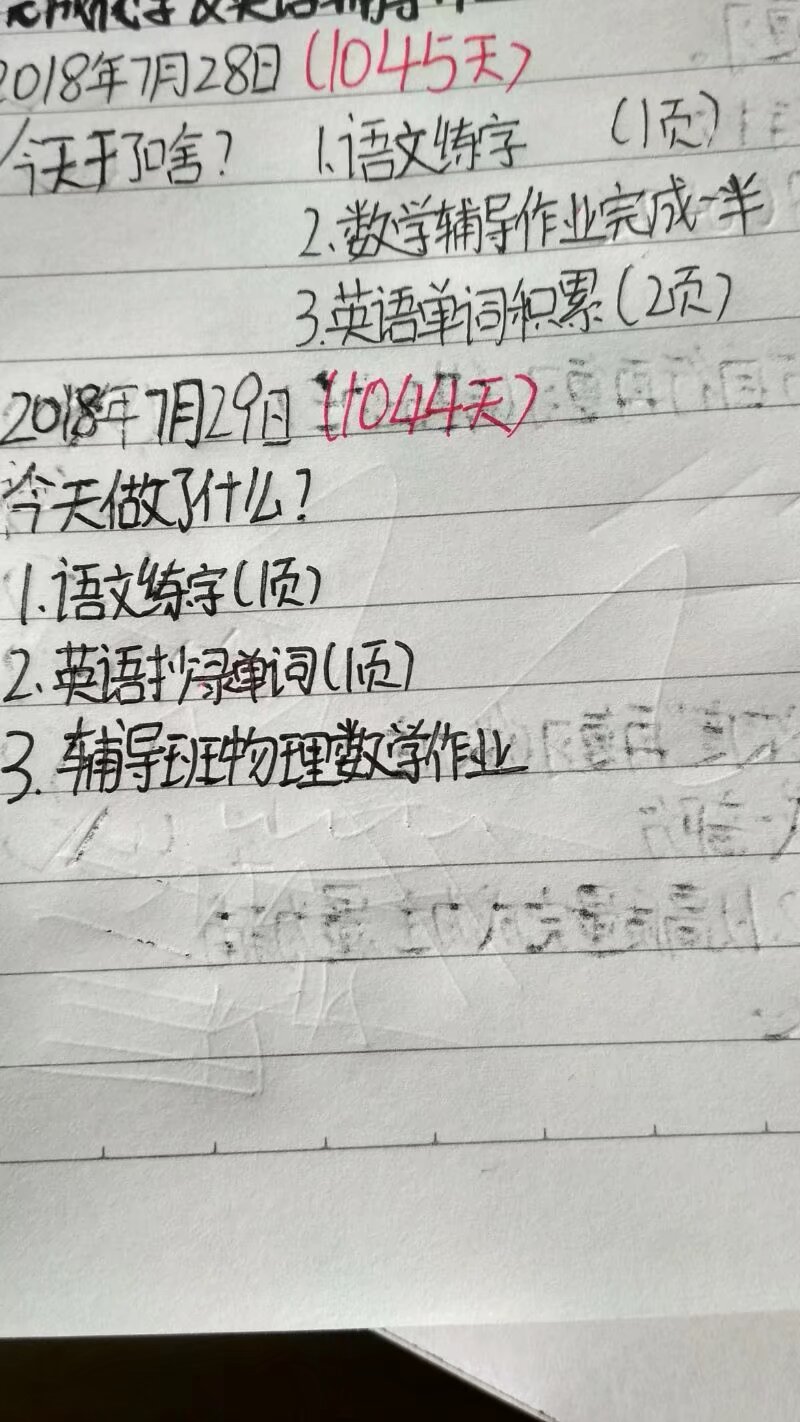 2018年7月28日(1045天)
今天干了啥? 1.语文练字 (1页)
2.数学辅导作业完成一半
3.英语单词积累(2页)
2018年7月29日(1044天)
今天做了什么?
1.语文练字(1页)
2.英语抄录单词(1页)
3.辅导班物理数学作业